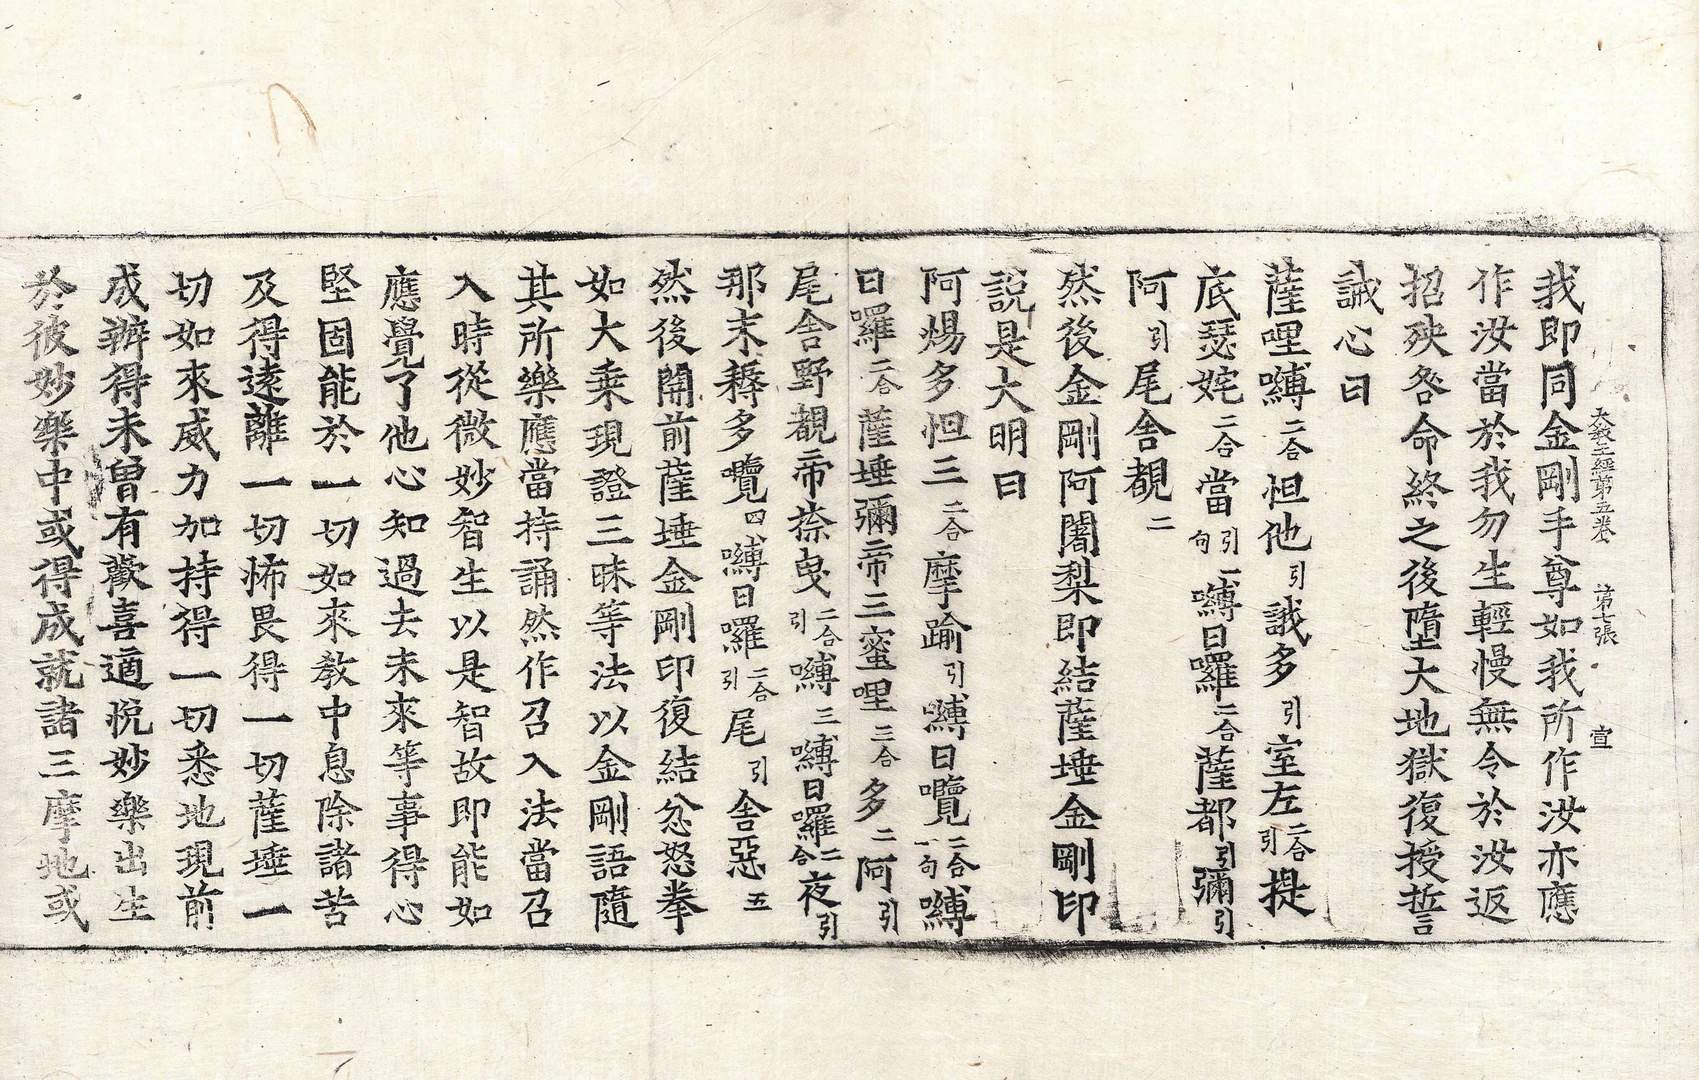 大教王經第五卷 第七張 宣
我即同金剛手尊如我所作汝亦應
作汝當於我勿生輕慢無令於汝返
招殃咎命終之後墮大地獄復授誓
誡心曰
薩哩嚩二合怛他引誐多引室左二合引提
底瑟姹二合當引句一嚩日囉二合薩都引彌引
阿引尾舍覩二
然後金剛阿闍梨即結薩埵金剛印
說是大明曰
阿煬多怛三二合摩踰引嚩日囕二合一句嚩
日囉二合薩埵彌帝三蜜哩三合多二阿引
尾舍野覩帝捺曳二合引嚩三嚩日囉二合夜引
那末耨多囕四嚩日囉二合引尾引舍惡五
然後開前薩埵金剛印復結忿怒拳
如大乘現證三昧等法以金剛語隨
其所樂應當持誦然作召入法當召
入時從微妙智生以是智故即能如
應覺了他心知過去未來等事得心
堅固能於一切如來教中息除諸苦
及得遠離一切怖畏得一切薩埵一
切如來威力加持得一切悉地現前
成辦得未曾有歡喜適悅妙樂出生
於彼妙樂中或得成就諸三摩地或